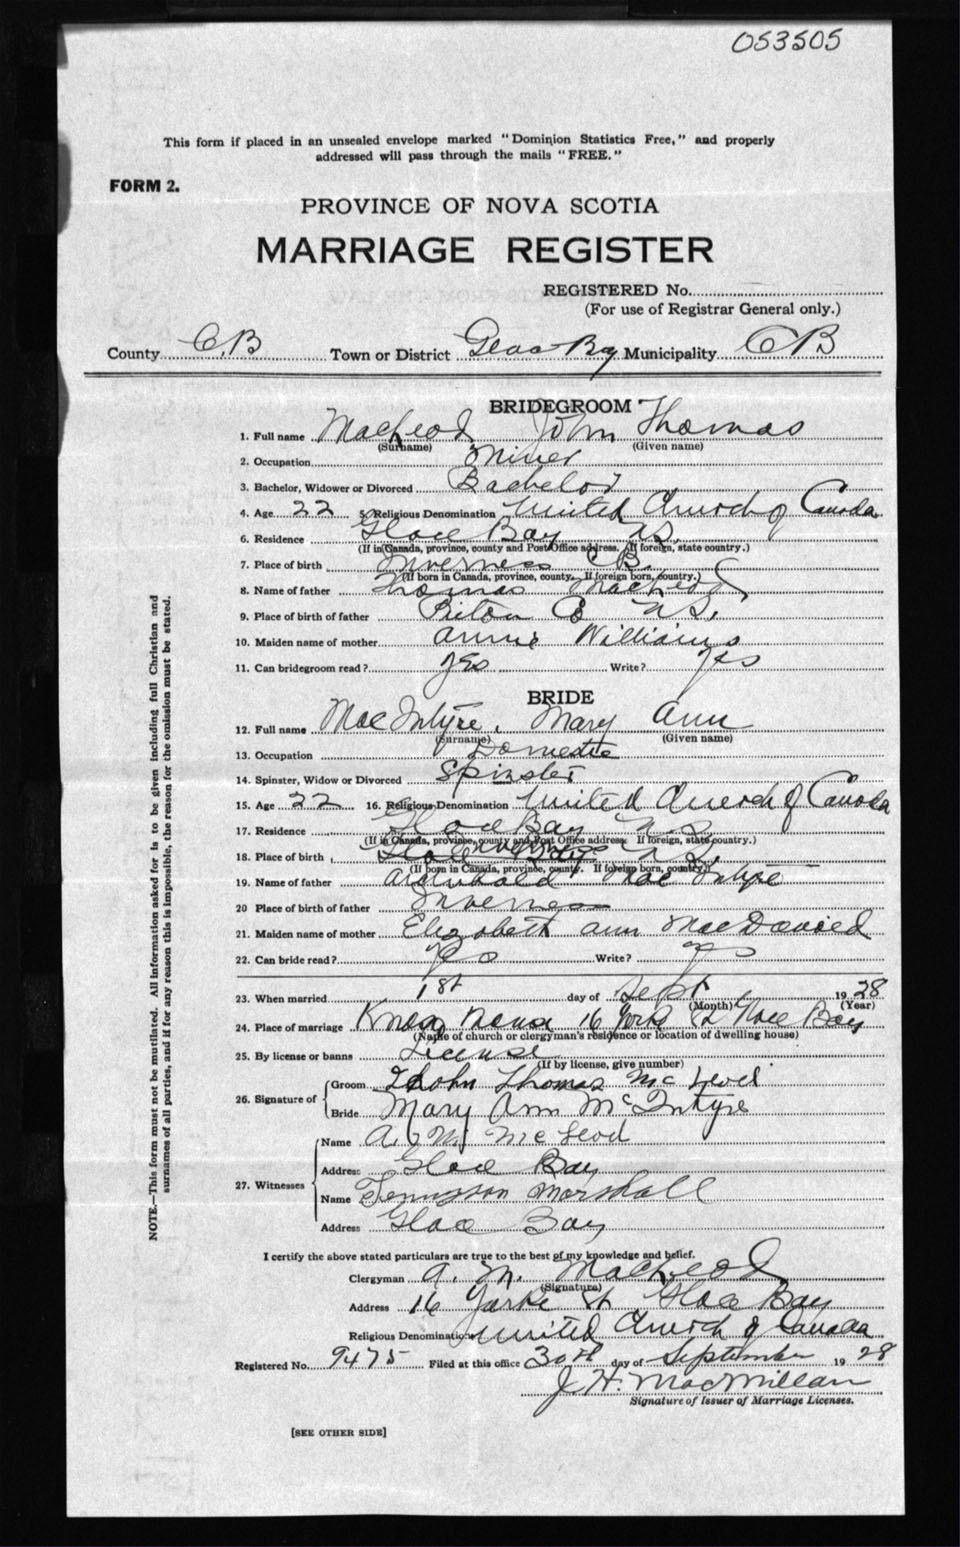 053505
This form if placed in an unsealed envelope marked "Dominion Statistics Free," and properly
addressed will pass through the mails "FREE."
FORM 2.
PROVINCE OF NOVA SCOTIA
MARRIAGE REGISTER
REGISTERED No.
(For use of Registrar General only.)
County C.B Town or District Glace Bay Municipality CB
BRIDEGROOM
1. Full name MacLeod John Thomas
(Surname) (Given name)
2. Occupation Miner
3. Bachelor, Widower or Divorced Bachelor
4. Age 22 5. Religious Denomination United Church of Canada
6. Residence Glace Bay NS
(If in Canada, province, county and Post Office address. If foreign, state country.)
7. Place of birth Inverness CB
(If born in Canada, province, county. If foreign born, country.)
8. Name of father Thomas MacLeod
9. Place of birth of father Co N.S.
10. Maiden name of mother Annie Williams
11. Can bridegroom read? yes Write? yes
BRIDE
12. Full name MacIntyre, Mary Ann
(Surname) (Given name)
13. Occupation Domestic
14. Spinster, Widow or Divorced Spinster
15. Age 22 16. Religious Denomination United Church of Canada
17. Residence Glace Bay N.S.
(If in Canada, province, county and Post Office address. If foreign, state country.)
18. Place of birth Glace Bay Inverness N.S.
(If born in Canada, province, county. If foreign born, country.)
19. Name of father Archibald MacIntyre
20 Place of birth of father Inverness
21. Maiden name of mother Elizabeth Ann MacDonald
22. Can bride read? yes Write? yes
23. When married 1st day of Sept 1928
(Month) (Year)
24. Place of marriage Knox Manse 16 York St Glace Bay
(Name of church or clergyman's residence or location of dwelling house)
25. By license or banns License
(If by license, give number)
26. Signature of
Groom John Thomas Mc
Bride Mary Ann McIntyre
27. Witnesses
Name A. M. McLeod
Address Glace Bay
Name Tennyson Marshall
Address Glace Bay
I certify the above stated particulars are true to the best of my knowledge and belief.
Clergyman A. M. MacLeod
(Signature)
Address 16 Yorke St Glace Bay
Religious Denomination United Church of Canada
Registered No. 9475 Filed at this office 30th day of September 1928
J. H. MacMillan
Signature of Issuer of Marriage Licenses.
[SEE OTHER SIDE]
NOTE.—This form must not be mutilated. All information asked for is to be given including full Christian and
surnames of all parties, and if for any reason this is impossible, the reason for the omission must be stated.